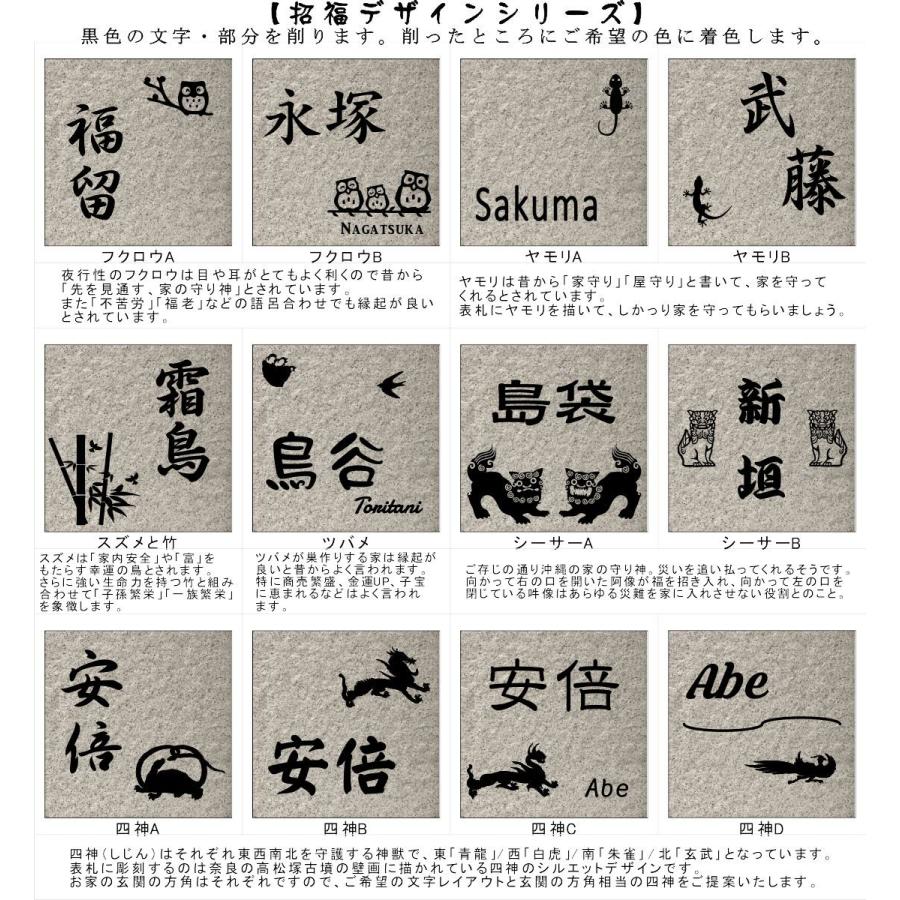 【招福デザインシリーズ】
黒色の文字・部分を削ります。削ったところにご希望の色に着色します。
福留
永塚
NAGATSUKA
Sakuma
武藤
フクロウA
フクロウB
ヤモリA
ヤモリB
夜行性のフクロウは目や耳がとてもよく利くので昔から
「先を見通す、家の守り神」とされています。
また「不苦労」「福老」などの語呂合わせでも縁起が良い
とされています。
ヤモリは昔から「家守り」「屋守り」と書いて、家を守って
くれるとされています。
表札にヤモリを描いて、しかっり家を守ってもらいましょう。
霜鳥
鳥谷
Toritani
島袋
新垣
スズメと竹
ツバメ
シーサーA
シーサーB
スズメは「家内安全」や「富」を
もたらす幸運の鳥とされます。
さらに強い生命力を持つ竹と組み
合わせて「子孫繁栄」「一族繁栄」
を象徴します。
ツバメが巣作りする家は縁起が
良いと昔からよく言われます。
特に商売繁盛、金運UP、子宝
に恵まれるなどはよく言われ
ます。
ご存じの通り沖縄の家の守り神。災いを追い払ってくれるそうです。
向かって右の口を開いた阿像が福を招き入れ、向かって左の口を
閉じている吽像はあらゆる災難を家に入れさせない役割とのこと。
安倍
安倍
安倍
Abe
Abe
四神A
四神B
四神C
四神D
四神(しじん)はそれぞれ東西南北を守護する神獣で、東「青龍」/西「白虎」/南「朱雀」/北「玄武」となっています。
表札に彫刻するのは奈良の高松塚古墳の壁画に描かれている四神のシルエットデザインです。
お家の玄関の方角はそれぞれですので、ご希望の文字レイアウトと玄関の方角相当の四神をご提案いたします。